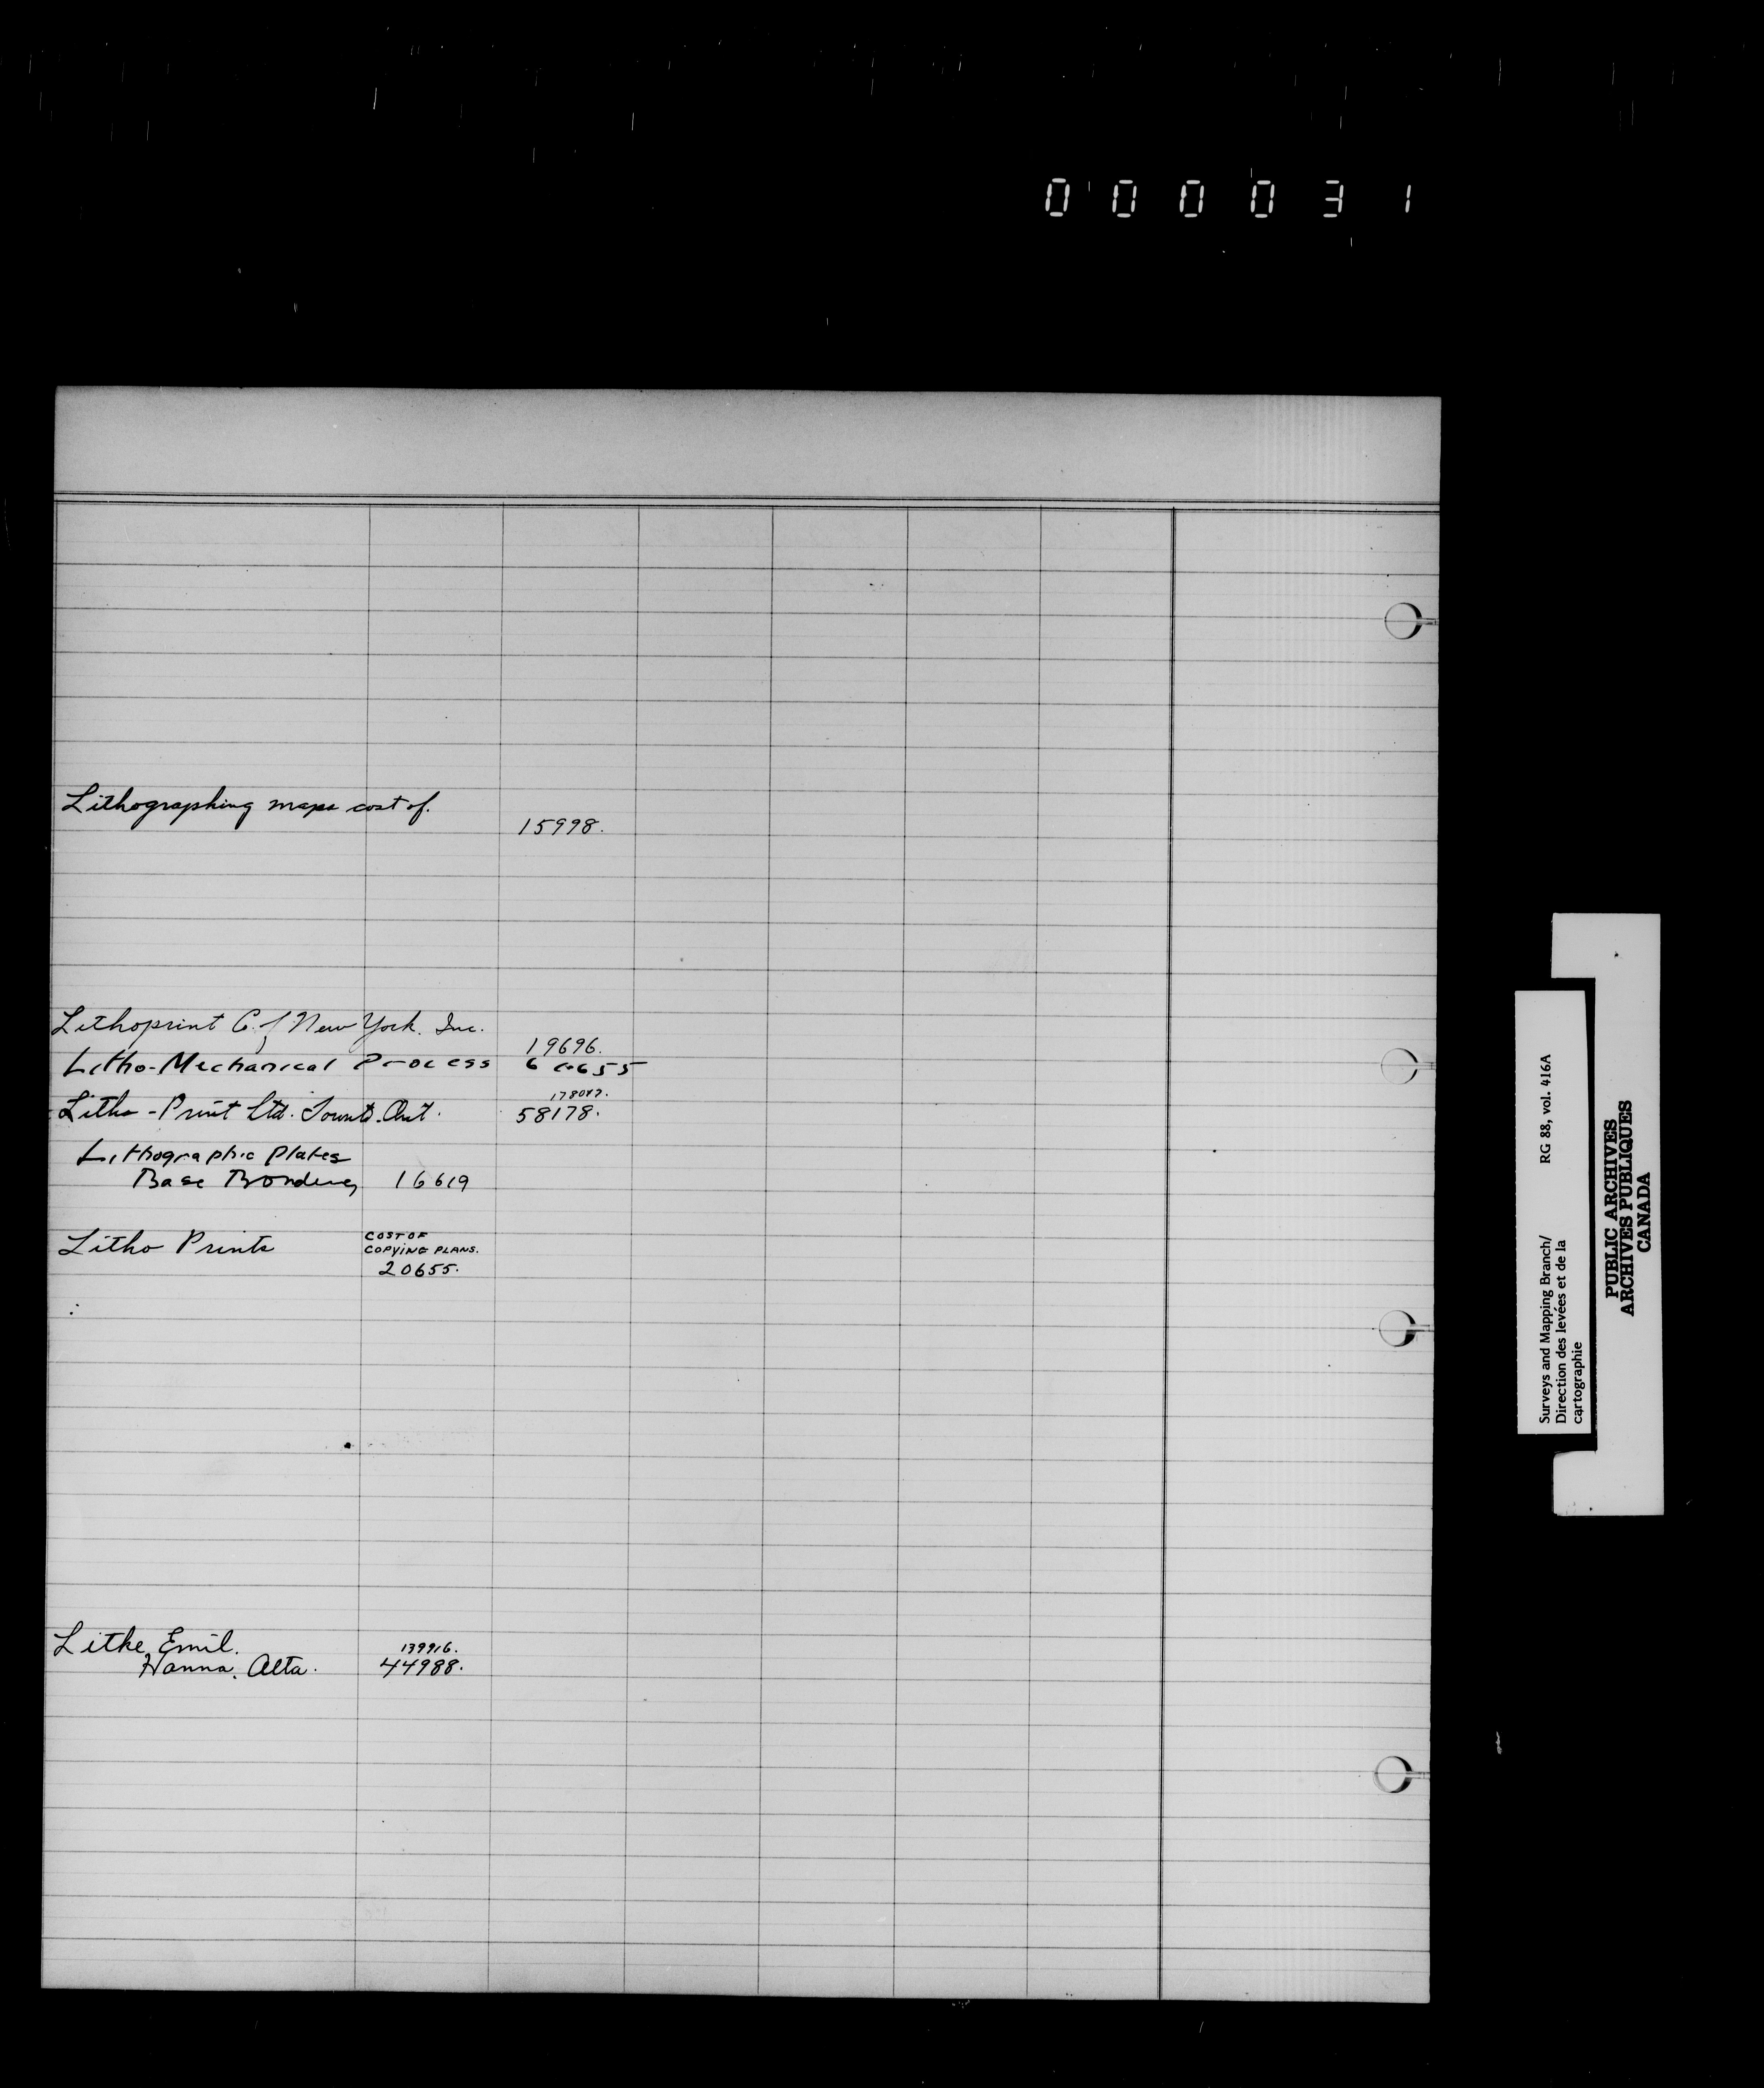 000031
Lithographing maps cost of.
15998.
Lithoprint C. of New York. Inc.
19696.
Litho-Mechanical Process 6
178087.
Litho-Print Ltd. Toronto. Ont. 58178.
Lithographic Plates
Base Bonding 16619
Litho Prints COST OF
COPYING PLANS.
20655.
Litke, Emil. 139916.
Hanna. Alta. 44988.
Surveys and Mapping Branch/ RG 88, vol. 416A
Direction des levées et de la
cartographie
PUBLIC ARCHIVES
ARCHIVES PUBLIQUES
CANADA